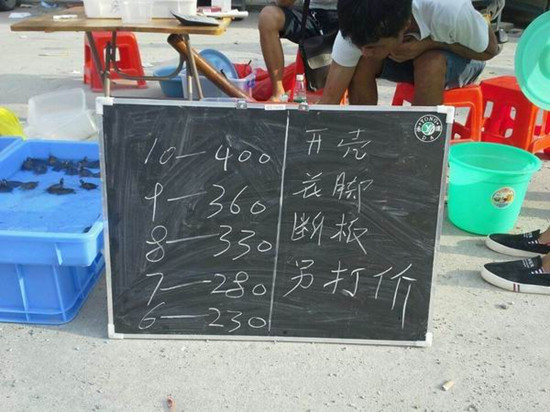 10—400
9—360
8—330
7—280
6—230
开壳
花脚
断板
另打价